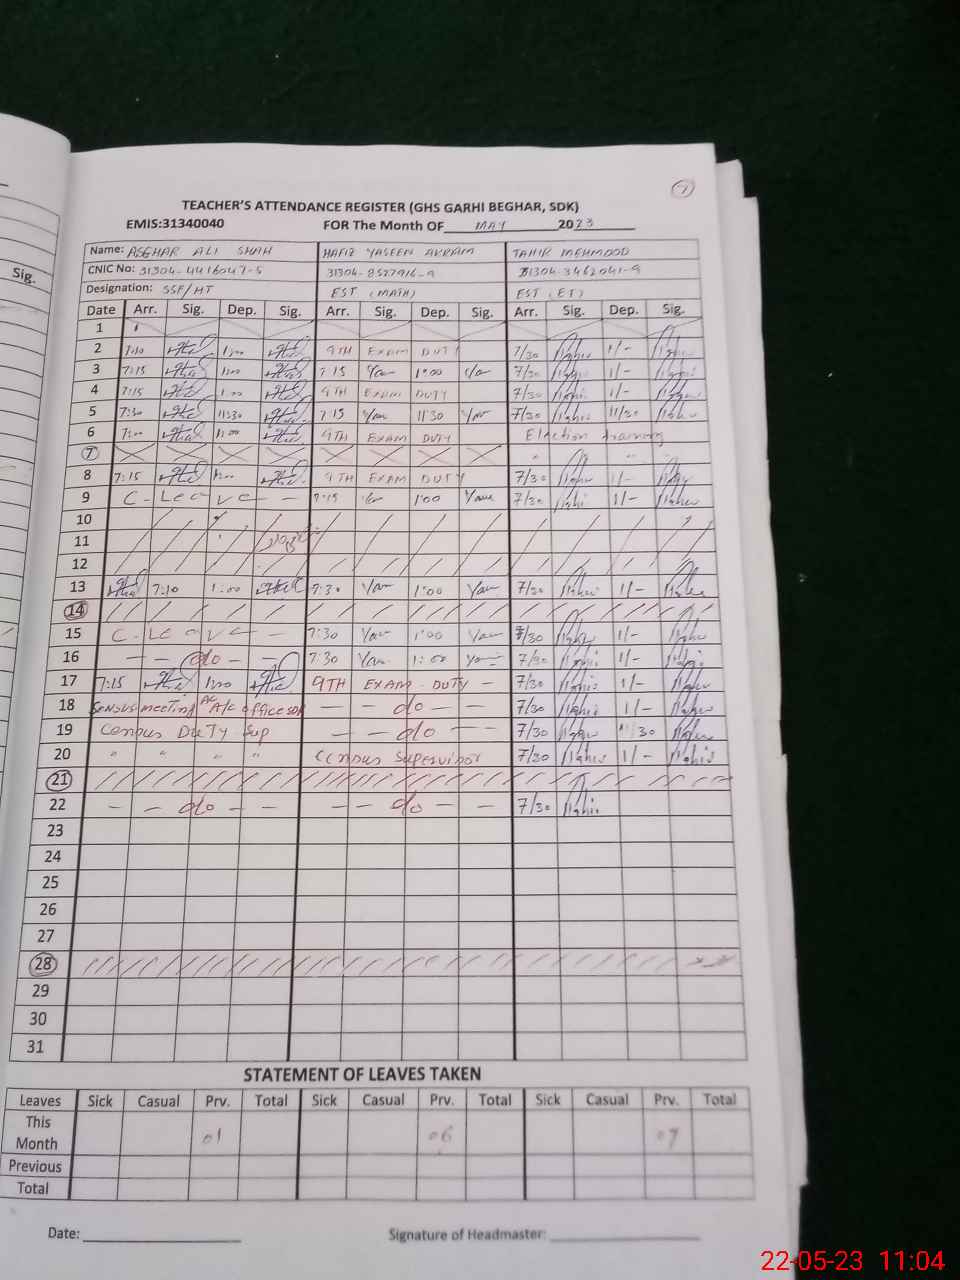 Sig.
TEACHER'S ATTENDANCE REGISTER (GHS GARHI BEGHAR, SDK)
EMIS:31340040 FOR The Month OF MAY 2023
Name: ASGHAR ALI SHAH HAFIZ YASEEN AKRAM TAHIR MEHMOOD
CNIC No: 31304-4416047-5 31304-8527916-9 31304-3462041-9
Designation: SSE/HT EST (MATH) EST (ET)
Date Arr. Sig. Dep. Sig. Arr. Sig. Dep. Sig. Arr. Sig. Dep. Sig.
1
2 7:10 1:00 9TH EXAM DUTY 7/30 1/-
3 7:15 1:00 7:15 Yar 1:00 Yar 7/30 1/-
4 7:15 1:00 9TH EXAM DUTY 7/30 1/-
5 7:30 11:30 7:15 Yar 11:30 Yar 7/30 11/30
6 7:00 11:00 9TH EXAM DUTY Election training
7 " "
8 7:15 1:00 9TH EXAM DUTY 7/30 1/-
9 C. Leave - 7:15 1:00 7/30 1/-
10
11
12
13 7:10 1:00 7:30 Yar 1:00 Yar 7/30 1/-
14
15 C. Leave - 7:30 Yar 1:00 Yar 7/30 1/-
16 - - do - - 7:30 Yar 1:00 7/30 1/-
17 7:15 1:00 9TH EXAM - DUTY - 7/30 1/-
18 Sensus meeting AC A/c office SDK - - do - - 7/30 1/-
19 Census DUTY Sup - - do - - 7/30 30
20 " " " " Census Supervisor 7/30 1/-
21
22 - - do - - - - do - - 7/30
23
24
25
26
27
28
29
30
31
STATEMENT OF LEAVES TAKEN
Leaves Sick Casual Prv. Total Sick Casual Prv. Total Sick Casual Prv. Total
This Month 01 06 07
Previous
Total
Date: Signature of Headmaster:
22-05-23 11:04